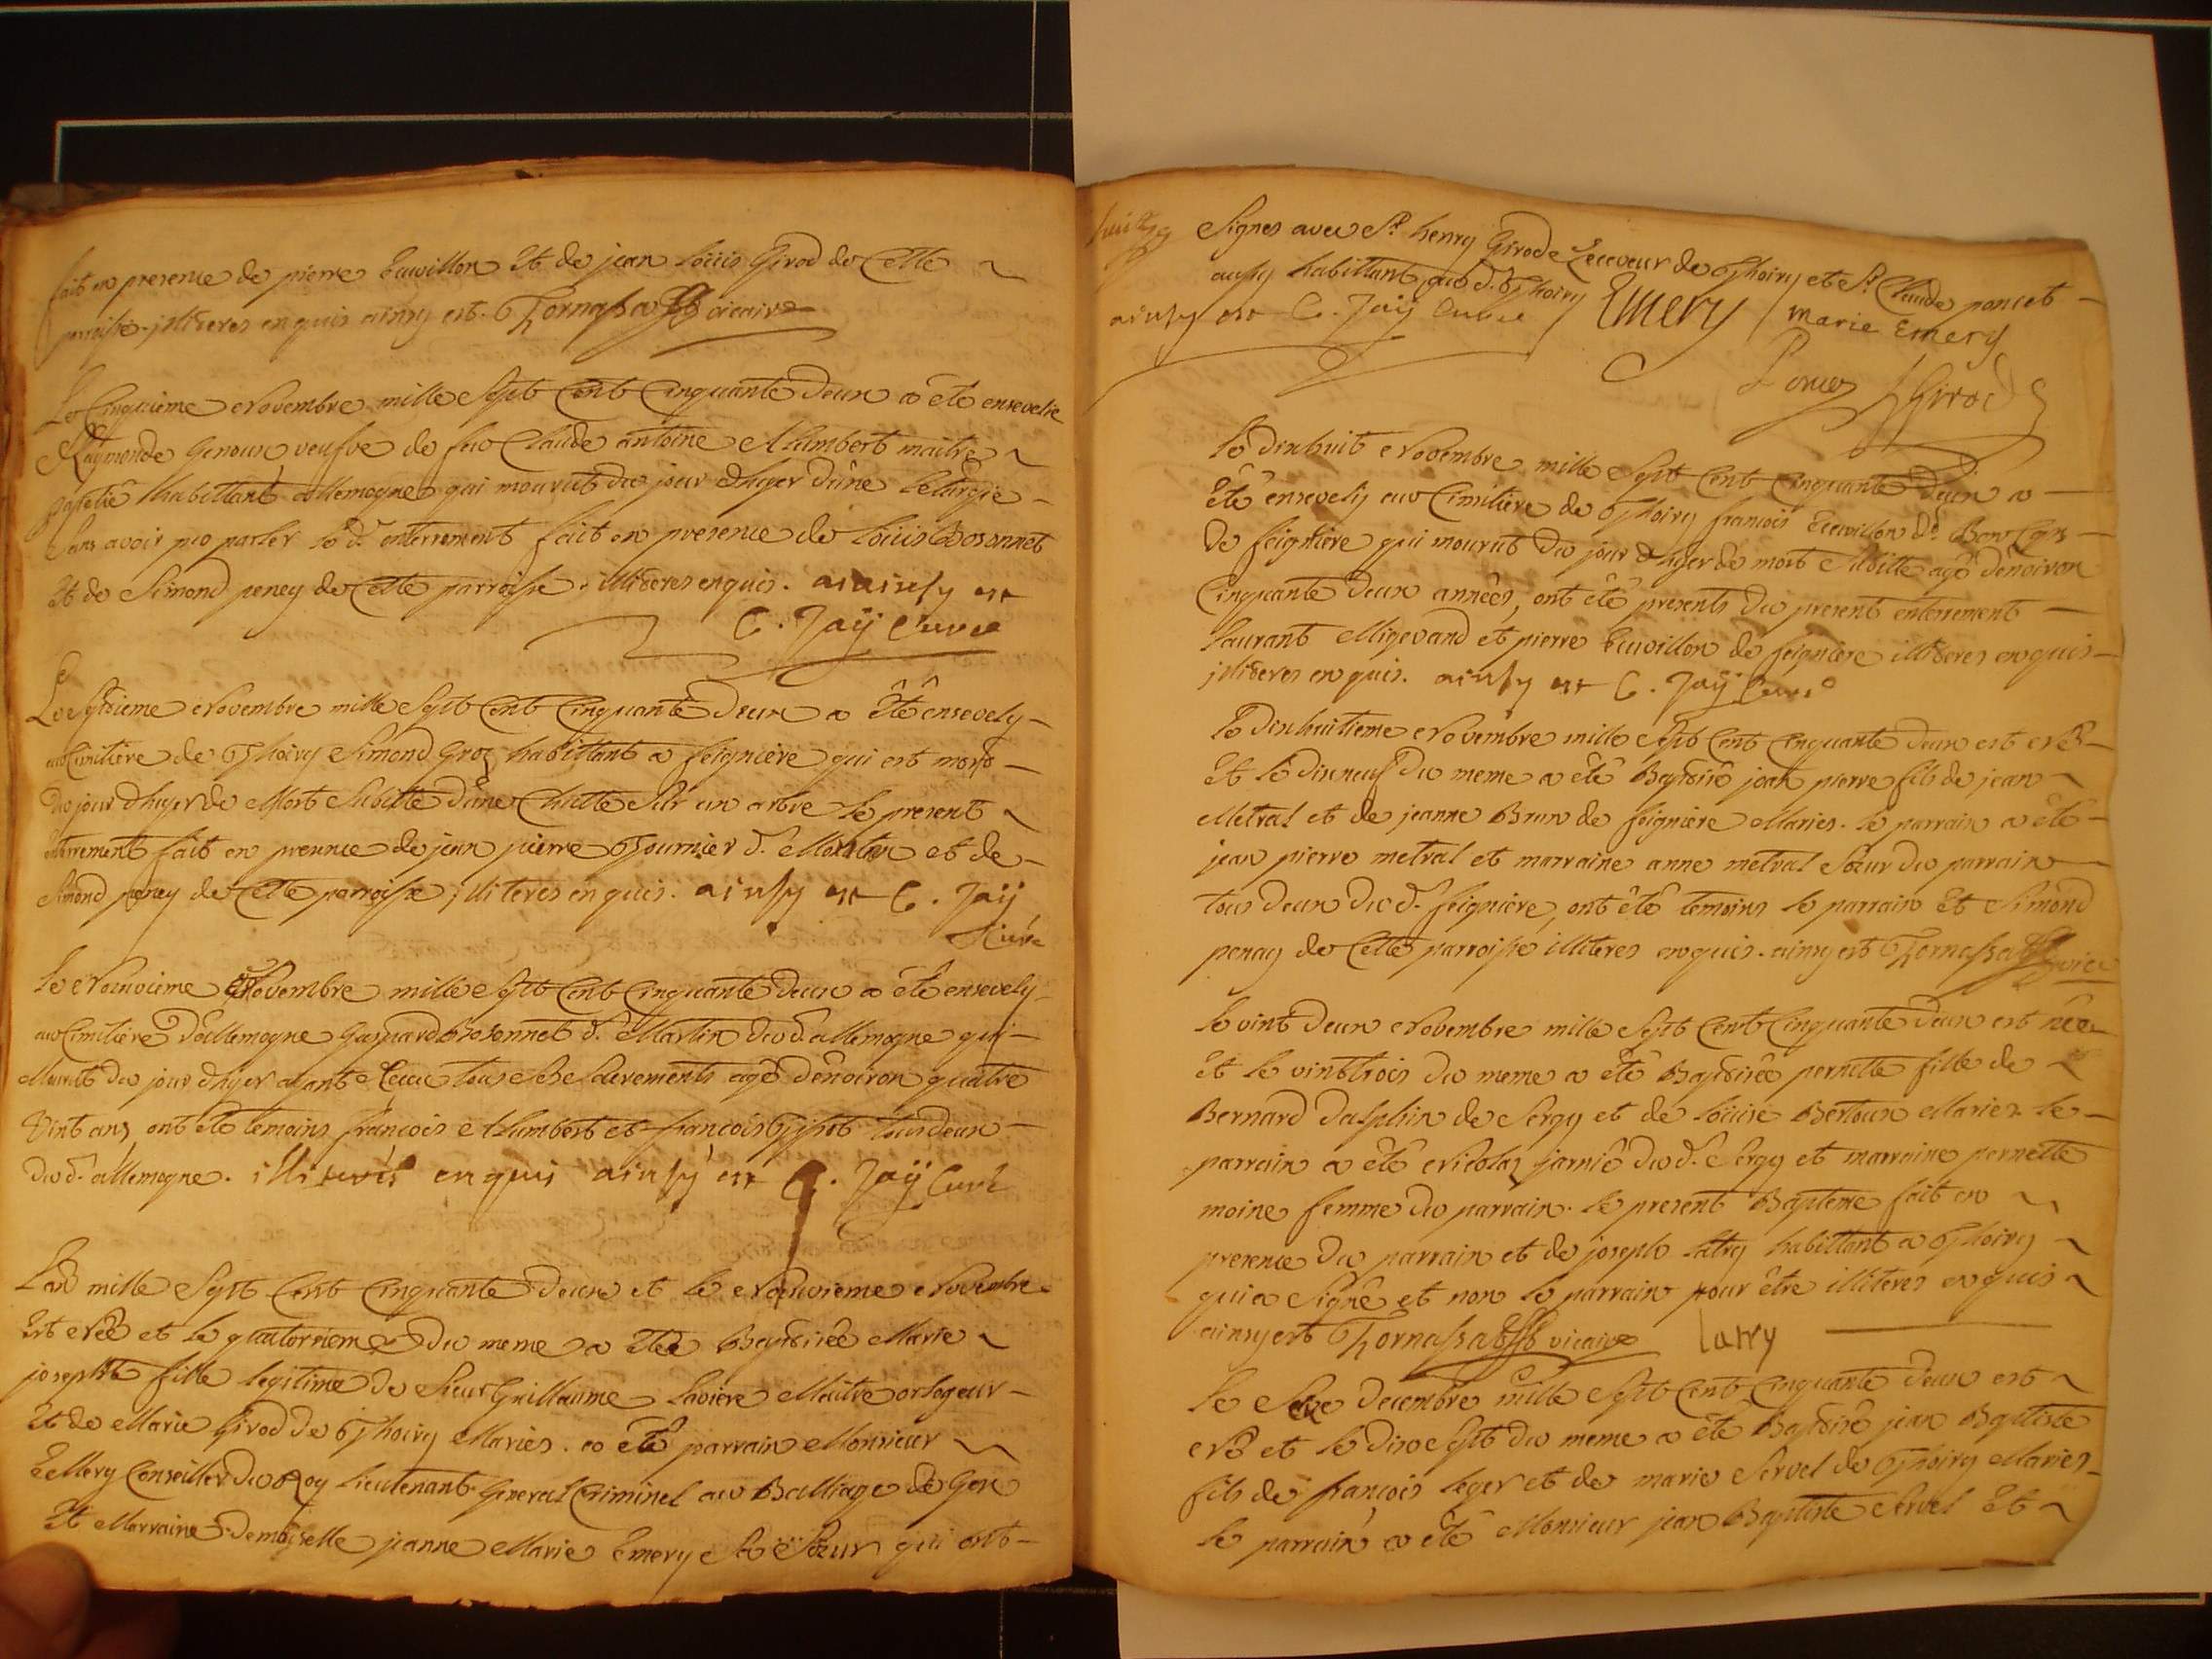 fait en presence de pierre Ecuvillon Et de jean loüis Girod de Cette
parroisse illiteres enquis ainsy est. Thornassat vicaire
Le Cinquieme Novembre mille Sept Cent Cinquante Deux a été ensevelie
Raymonde Genoux veufve de feu Claude antoine Humbert maitre
habittant allemogne qui mourut du jour d'hyer d'ûne letargie
Sans avoir pu parler le d. enterrement fait en presence de loüis Bosonnet
Et de Simond peney de Cette parroisse illiteres enquis. ainsy est
C. Jaÿ Curé
Le Novembre mille Sept Cent Cinquante Deux a Eté ensevely
au Cimitiere de Thoiry Simond Groz habittant a feigniere qui est mort
du jour d'hyer de Mort Subitte d'ûne Chutte Sur un arbre le present
enterrement fait en presence de jean pierre Tournier d. et de
Simond peney de Cette parroisse illiteres enquis. ainsy est C. Jaÿ
Curé
le Neuvieme Novembre mille Sept Cent Cinquante Deux a été ensevely
au Cimitiere d'allemogne Gaspard Bosonnet d. Martin du d. allemogne qui
Mourut du jour d'hyer ayant Reçu tous Ses Sacrements agé d'environ quatre
Vint ans, ont été temoins françois Humbert et françois tous deux
du d. allemogne. illiterés enquis ainsy est C. Jaÿ Curé
L'an mille Sept Cent Cinquante Deux et le Neuvieme Novembre
Est Née et le quatorzieme du meme a Etée Baptisée Marie
josephte fille legitime de Sieur Guillaume Maitre orlogeur
Et de Marie Girod de Thoiry Mariés. a été parrain Monsieur
Emery Conseiller du Roy lieutenant General Criminel au Balliage de Gex
Et Marraine Demoiselle jeanne Marie Emery Sa Sœur qui ont
Signes avec Sr. henry Girod Receveur de Thoiry et Sr. Claude poncet
aussy habittant au d. Thoiry
ainsy est C. Jaÿ Curé Emery marie Emery
Poncet Girod
le dixhuit Novembre mille Sept Cent Cinquante Deux a
Eté ensevely au Cimitiere de Thoiry françois Ecuvillon
de feigniere qui mourut du jour d'hyer de mort Subitte agé d'environ
Cinquante deux années, ont été presents du present enterrement
laurant Migevand et pierre Ecuvillon de feigniere illiteres enquis
illiteres enquis. ainsy est C. Jaÿ Curé
le dixhuitieme Novembre mille Sept Cent Cinquante Deux est Né
Et le dixneuf du meme a été Baptisé jean pierre fils de jean
Metral et de jeanne Brun de feigniere Mariés. le parrain a été
jean pierre metral et marraine anne metral Sœur du parrain
tous deux du d. feigniere, ont été temoins le parrain Et Simond
peney de Cette parroisse illiteres enquis. ainsy est Thornassat vicaire
le vint deux Novembre mille Sept Cent Cinquante Deux est née
Et le vint trois du meme a été Baptisée pernette fille de
Bernard Dalphin de Sergy et de loüise Bertoux Mariés le
parrain a été Nicolaz jarnié du d. Sergy et marraine pernette
moine femme du parrain. le present Bapteme fait en
presence du parrain et de joseph habittant a Thoiry
qui a Signé et non le parrain pour être illiteres enquis
ainsy est Thornassat vicaire
le Seize Decembre mille Sept Cent Cinquante Deux est
Né et le dix Sept du meme a été Baptisé jean Baptiste
fils de françois leger et de marie Servel de Thoiry Mariés
le parrain a été Monsieur jean Baptiste Servel Et